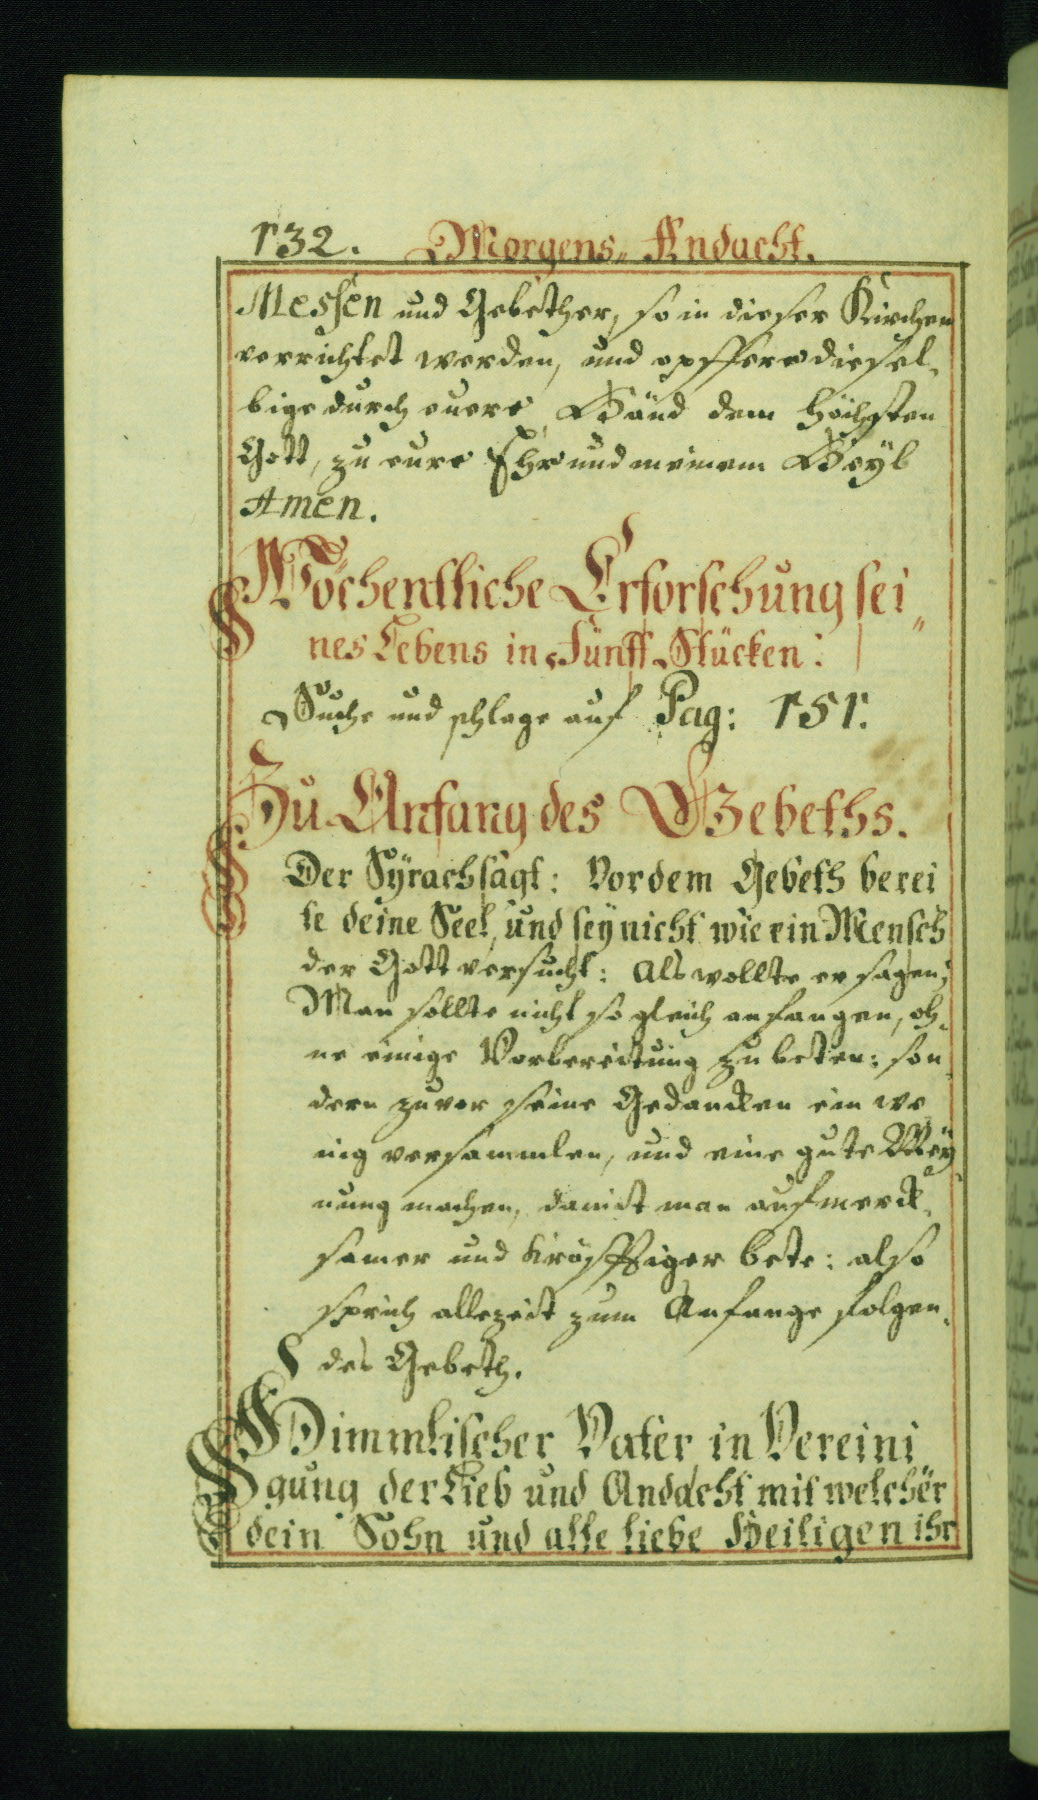 132. Morgens„ Andacht.
Messen und Gebether, so in dieser Kirchen
verrichtet werden, und opffere diesel„
bige durch euere Händ dem höchsten
Gott, zu eure Ehr und meinem Heÿl
Amen.
Wöchentliche Erforschung sei„
nes Lebens in Fünff Stücken:
Suche und schlage auf Pag: 151.
Zu Anfang des Gebeths.
Der Sÿrach sagt: Vor dem Gebeth berei
te deine Seel, und seÿ nicht wie ein Mensch
der Gott versucht: Als wollte er sagen;
Man sollte nicht so gleich anfangen, oh„
ne einige Vorbereitung zu beten: son„
dern zuvor seine Gedancken ein we„
nig versammlen, und eine gute Meÿ„
nung machen, damit man aufmerck„
samer und kräfftiger bete: also
sprich allezeit zum Anfange folgen„
des Gebeth.
Himmlischer Vater in Vereini
gung der Lieb und Andacht mit welcher
dein Sohn und alle liebe Heiligen ihr